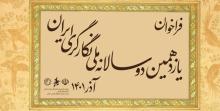 فراخوان
یازدهمین دوسالانه ملی نگارگری ایران
آذر ۱۴۰۱